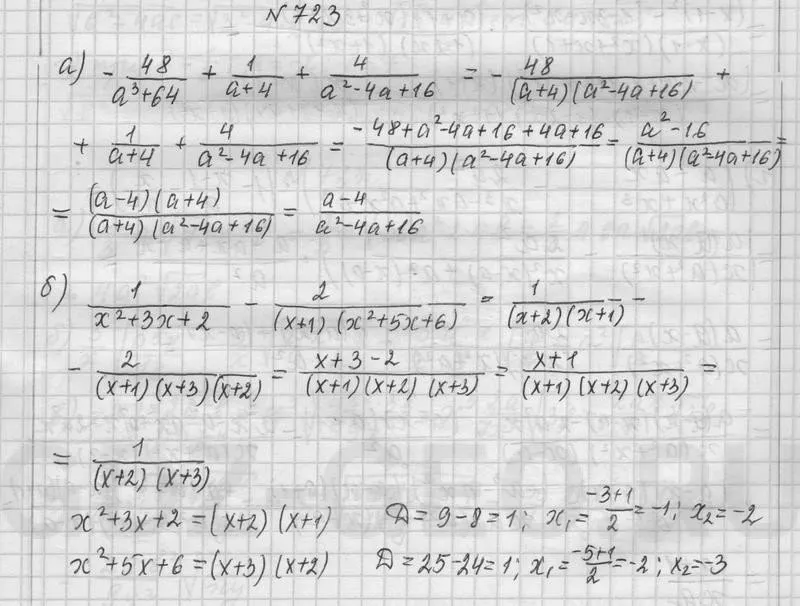 №723
а) - 48/(a³+64) + 1/(a+4) + 4/(a²-4a+16) = - 48/((a+4)(a²-4a+16)) +
+ 1/(a+4) + 4/(a²-4a+16) = (-48+a²-4a+16+4a+16)/((a+4)(a²-4a+16)) = (a²-16)/((a+4)(a²-4a+16)) =
= ((a-4)(a+4))/((a+4)(a²-4a+16)) = (a-4)/(a²-4a+16)
б) 1/(x²+3x+2) - 2/((x+1)(x²+5x+6)) = 1/((x+2)(x+1)) -
- 2/((x+1)(x+3)(x+2)) = (x+3-2)/((x+1)(x+2)(x+3)) = (x+1)/((x+1)(x+2)(x+3)) =
= 1/((x+2)(x+3))
x²+3x+2=(x+2)(x+1) D=9-8=1; x₁=(-3+1)/2=-1; x₂=-2
x²+5x+6=(x+3)(x+2) D=25-24=1; x₁=(-5+1)/2=-2; x₂=-3